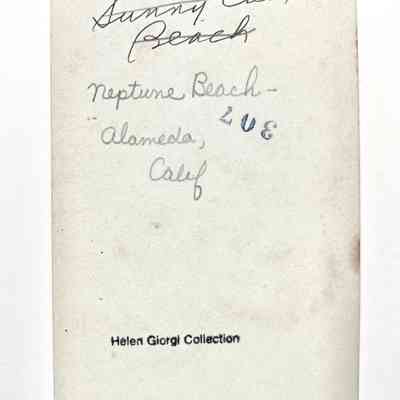 Sunny
Beach
Neptune Beach -
Alameda,
Calif
Helen Giorgi Collection